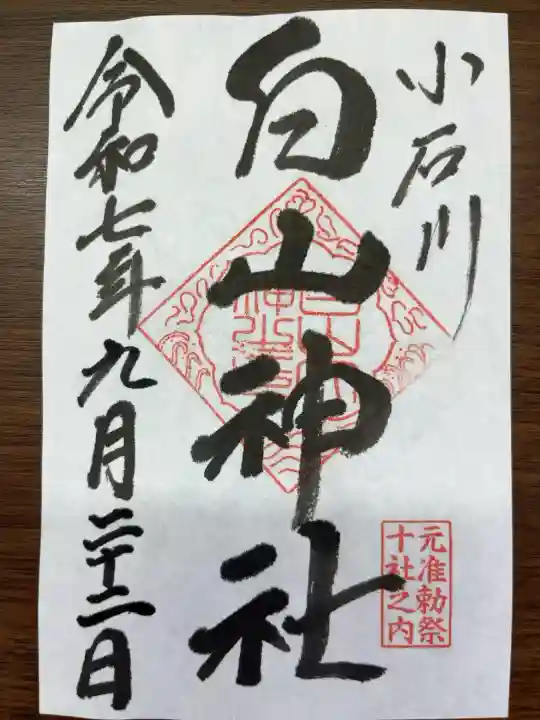 小石川
白山神社
元准勅祭
十社之内
令和七年九月二十二日